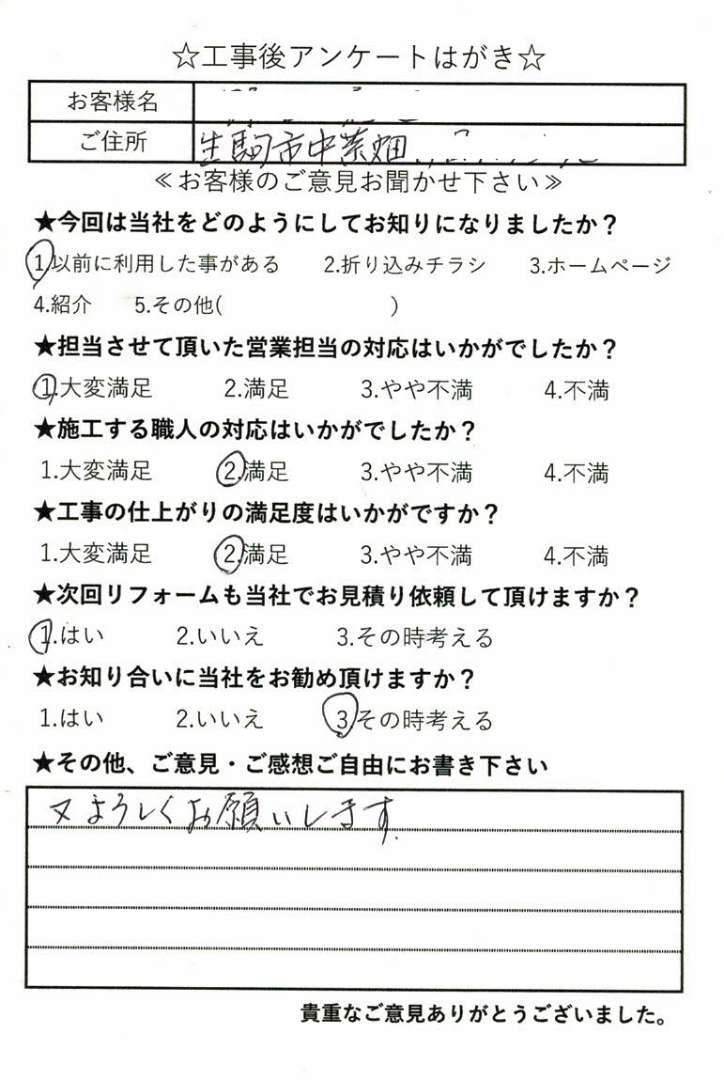 ☆工事後アンケートはがき☆
お客様名
ご住所 生駒市中菜畑
≪お客様のご意見お聞かせ下さい≫
★今回は当社をどのようにしてお知りになりましたか？
1.以前に利用した事がある 2.折り込みチラシ 3.ホームページ
4.紹介 5.その他( )
★担当させて頂いた営業担当の対応はいかがでしたか？
1.大変満足 2.満足 3.やや不満 4.不満
★施工する職人の対応はいかがでしたか？
1.大変満足 2.満足 3.やや不満 4.不満
★工事の仕上がりの満足度はいかがですか？
1.大変満足 2.満足 3.やや不満 4.不満
★次回リフォームも当社でお見積り依頼して頂けますか？
1.はい 2.いいえ 3.その時考える
★お知り合いに当社をお勧め頂けますか？
1.はい 2.いいえ 3.その時考える
★その他、ご意見・ご感想ご自由にお書き下さい
又よろしくお願いします.
貴重なご意見ありがとうございました。